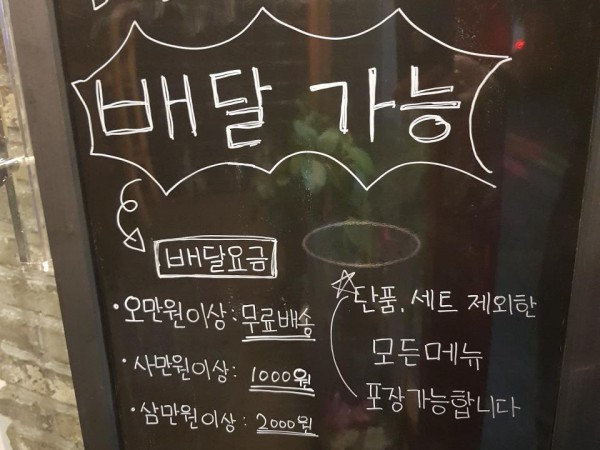 배달 가능
배달요금
·오만원이상: 무료배송
·사만원이상: 1000원
·삼만원이상: 2000원
☆단품, 세트 제외한
모든메뉴
포장가능합니다